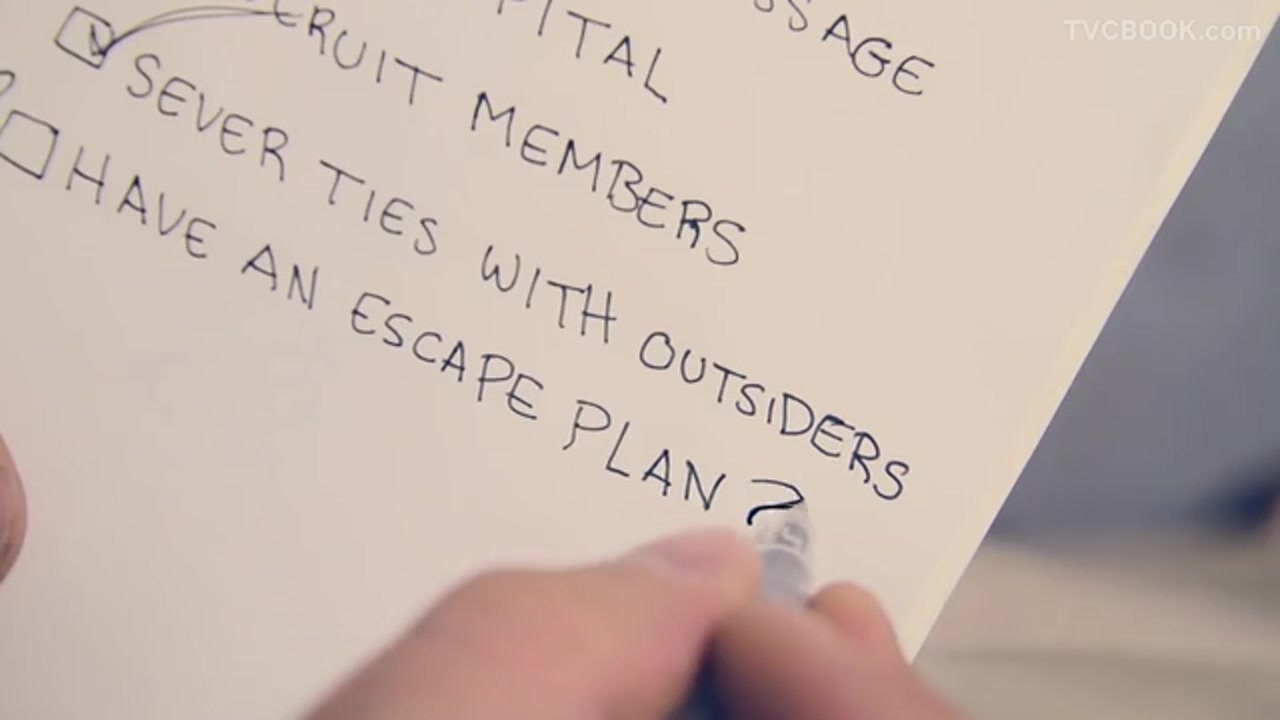 SSAGE
PITAL
CRUIT MEMBERS
SEVER TIES WITH OUTSIDERS
HAVE AN ESCAPE PLAN ?
TVCBOOK.com